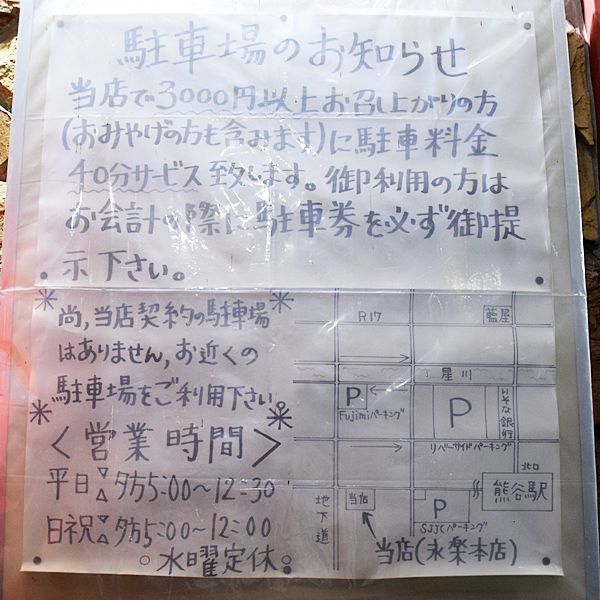 駐車場のお知らせ
当店で3000円以上お召し上がりの方
(おみやげの方も含みます)に駐車料金
40分サービス致します。御利用の方は
お会計の際に駐車券を必ず御提
示下さい。
尚,当店契約の駐車場
はありません,お近くの
駐車場をご利用下さい。
<営業時間>
平日 夕方5:00～12:30
日祝 夕方5:00～12:00
○水曜定休○
R17
藍屋
星川
P
Fujimiパーキング
P
りそな銀行
リバーサイドパーキング
北口
熊谷駅
地下道
当店
P
SJJCパーキング
当店(永楽本店)